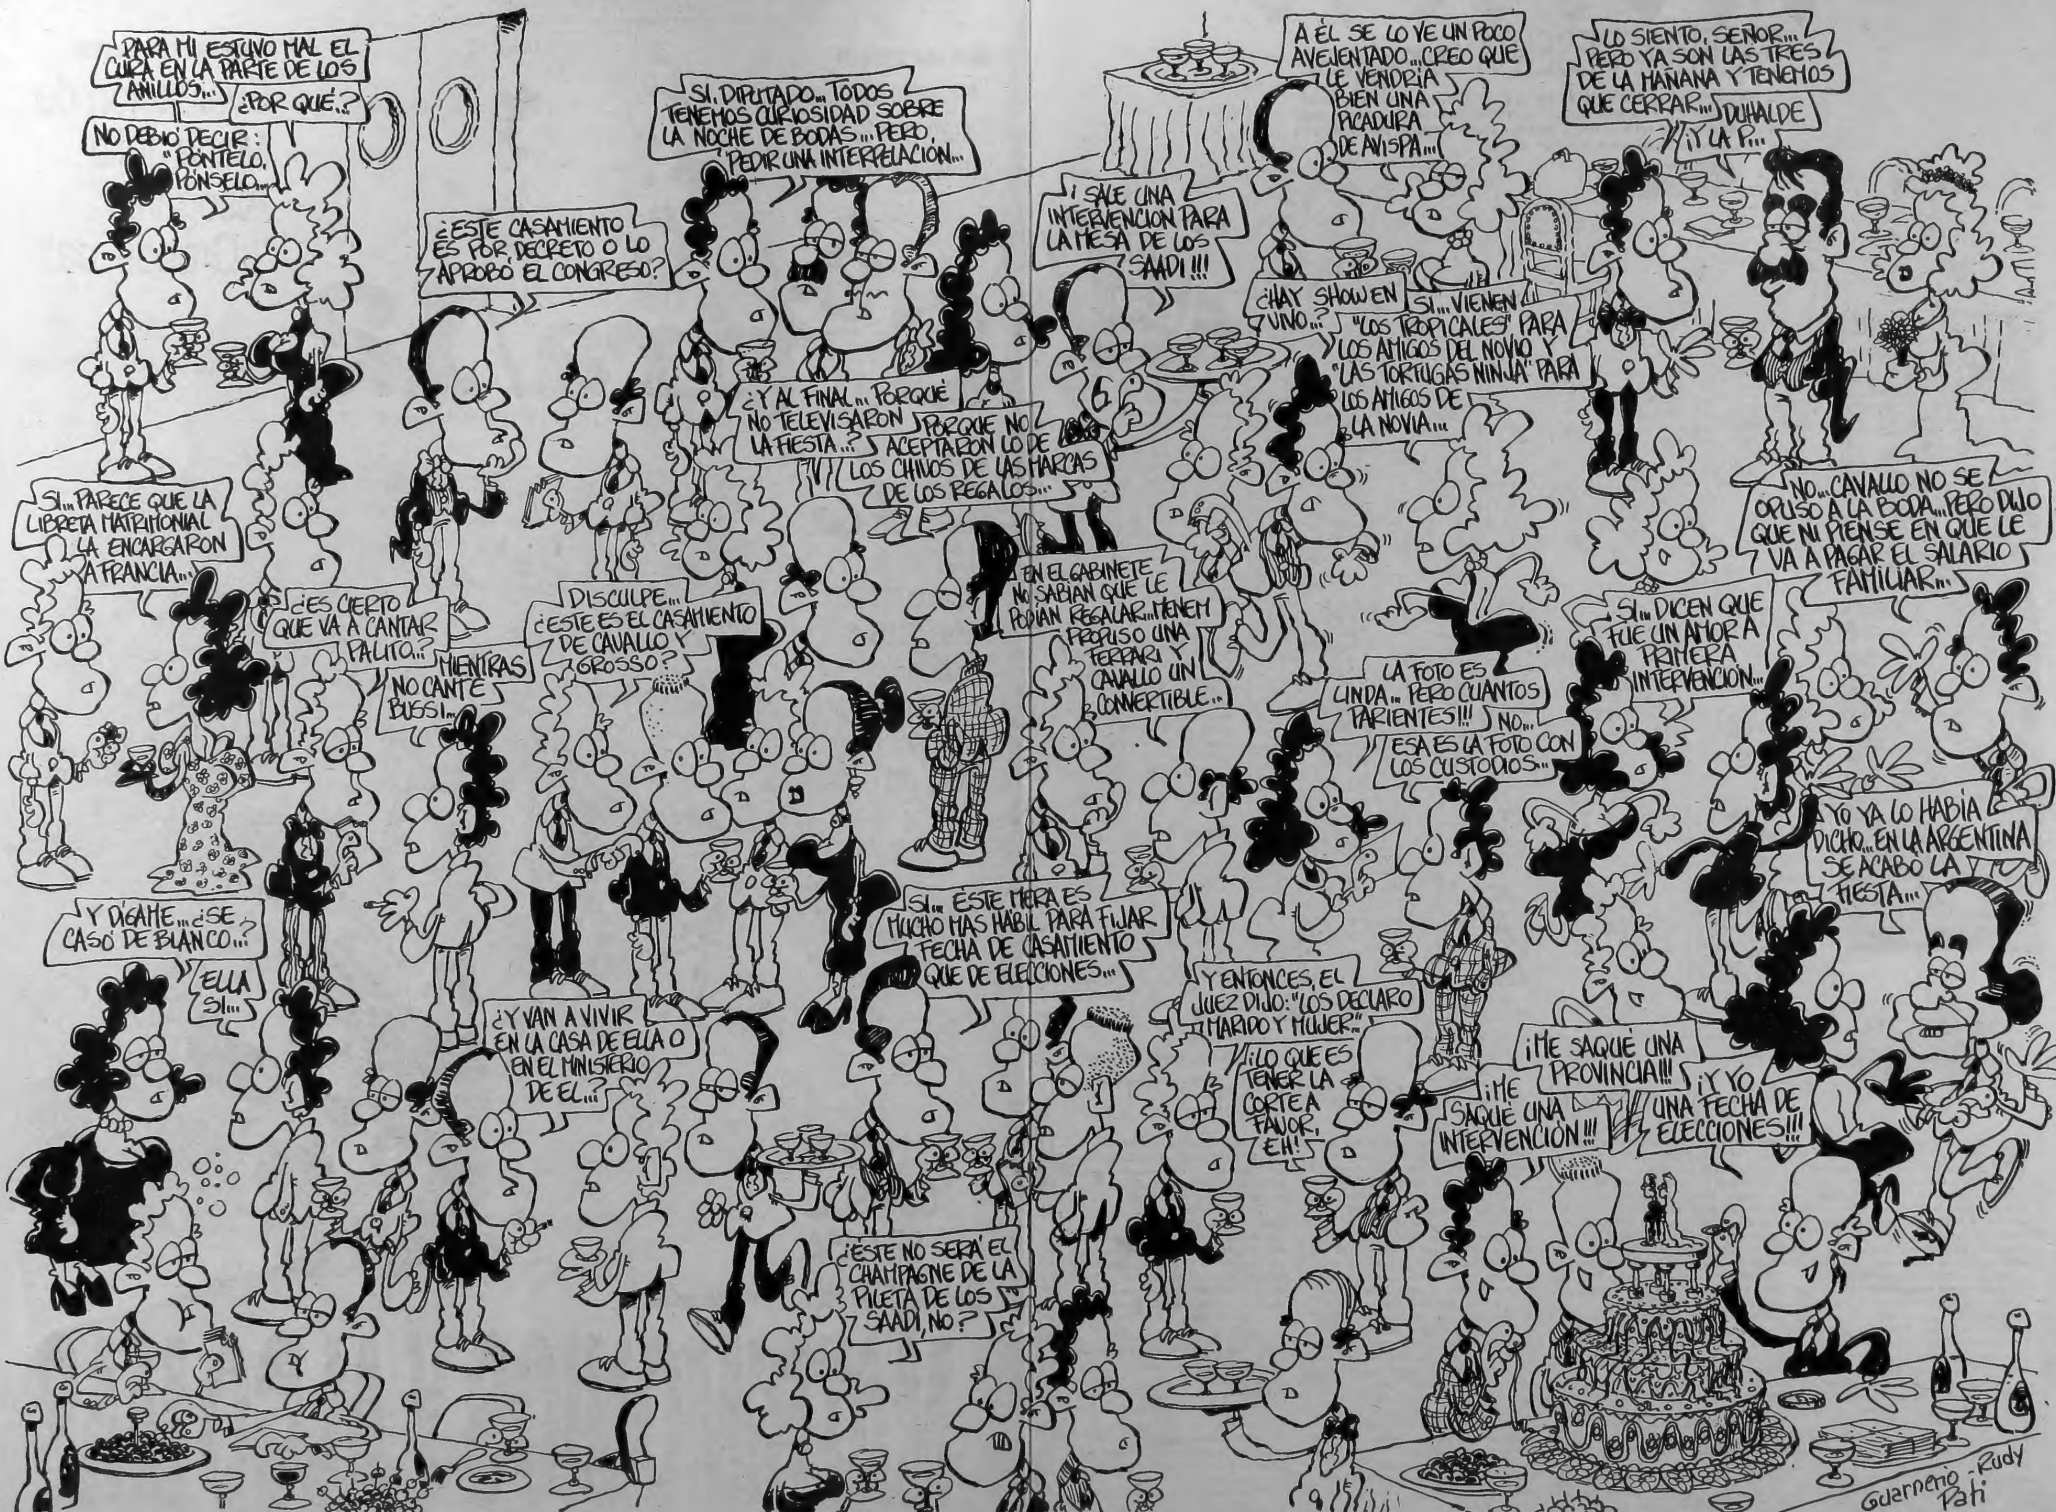 PARA MI ESTUVO MAL EL
CURA EN LA PARTE DE LOS
ANILLOS...
¿POR QUÉ..?
NO DEBIÓ DECIR:
"PÓNTELO,
PÓNSELO...
SI, DIPUTADO... TODOS
TENEMOS CURIOSIDAD SOBRE
LA NOCHE DE BODAS... PERO,
PEDIR UNA INTERPELACIÓN...
A ÉL SE LO VE UN POCO
AVEJENTADO... CREO QUE
LE VENDRÍA
BIEN UNA
PICADURA
DE AVISPA...
LO SIENTO, SEÑOR...
PERO YA SON LAS TRES
DE LA MAÑANA Y TENEMOS
QUE CERRAR...
DUHALDE
¡Y LA P...
¿ESTE CASAMIENTO
ES POR DECRETO O LO
APROBÓ EL CONGRESO?
¡SALE UNA
INTERVENCION PARA
LA MESA DE LOS
SAADI!!!
¿HAY SHOW EN
VIVO..?
SI... VIENEN
"LOS TROPICALES" PARA
LOS AMIGOS DEL NOVIO Y
"LAS TORTUGAS NINJA" PARA
LOS AMIGOS DE
LA NOVIA...
¿Y AL FINAL... PORQUÉ
NO TELEVISARON
LA FIESTA...?
PORQUE NO
ACEPTARON LO DE
LOS CHIVOS DE LAS MARCAS
DE LOS REGALOS...
SI... PARECE QUE LA
LIBRETA MATRIMONIAL
LA ENCARGARON
A FRANCIA...
NO... CAVALLO NO SE
OPUSO A LA BODA... PERO DIJO
QUE NI PIENSE EN QUE LE
VA A PAGAR EL SALARIO
FAMILIAR...
¿ES CIERTO
QUE VA A CANTAR
PALITO..?
MIENTRAS
NO CANTE
BUSSI...
DISCULPE...
¿ESTE ES EL CASAMIENTO
DE CAVALLO Y
GROSSO?
EN EL GABINETE
NO SABÍAN QUE LE
PODÍAN REGALAR... MENEM
PROPUSO UNA
FERRARI Y
CAVALLO UN
CONVERTIBLE...
SI... DICEN QUE
FUE UN AMOR A
PRIMERA
INTERVENCIÓN...
LA FOTO ES
LINDA... PERO CUANTOS
PARIENTES!!!
NO...
ESA ES LA FOTO CON
LOS CUSTODIOS...
YO YA LO HABÍA
DICHO... EN LA ARGENTINA
SE ACABÓ LA
FIESTA...
Y DÍGAME... ¿SE
CASÓ DE BLANCO...?
ELLA
SI...
SI... ESTE MERA ES
MUCHO MAS HABIL PARA FIJAR
FECHA DE CASAMIENTO
QUE DE ELECCIONES...
¿Y VAN A VIVIR
EN LA CASA DE ELLA O
EN EL MINISTERIO
DE EL...?
Y ENTONCES, EL
JUEZ DIJO: "LOS DECLARO
MARIDO Y MUJER"...
¡LO QUE ES
TENER LA
CORTE A
FAVOR,
EH!
¡ME
SAQUÉ UNA
INTERVENCIÓN!!!
¡ME SAQUÉ UNA
PROVINCIA!!!
¡Y YO
UNA FECHA DE
ELECCIONES!!!
¿ÉSTE NO SERÁ EL
CHAMPAGNE DE LA
PILETA DE LOS
SAADI, NO?
Guarnerio - Rudy
Pati